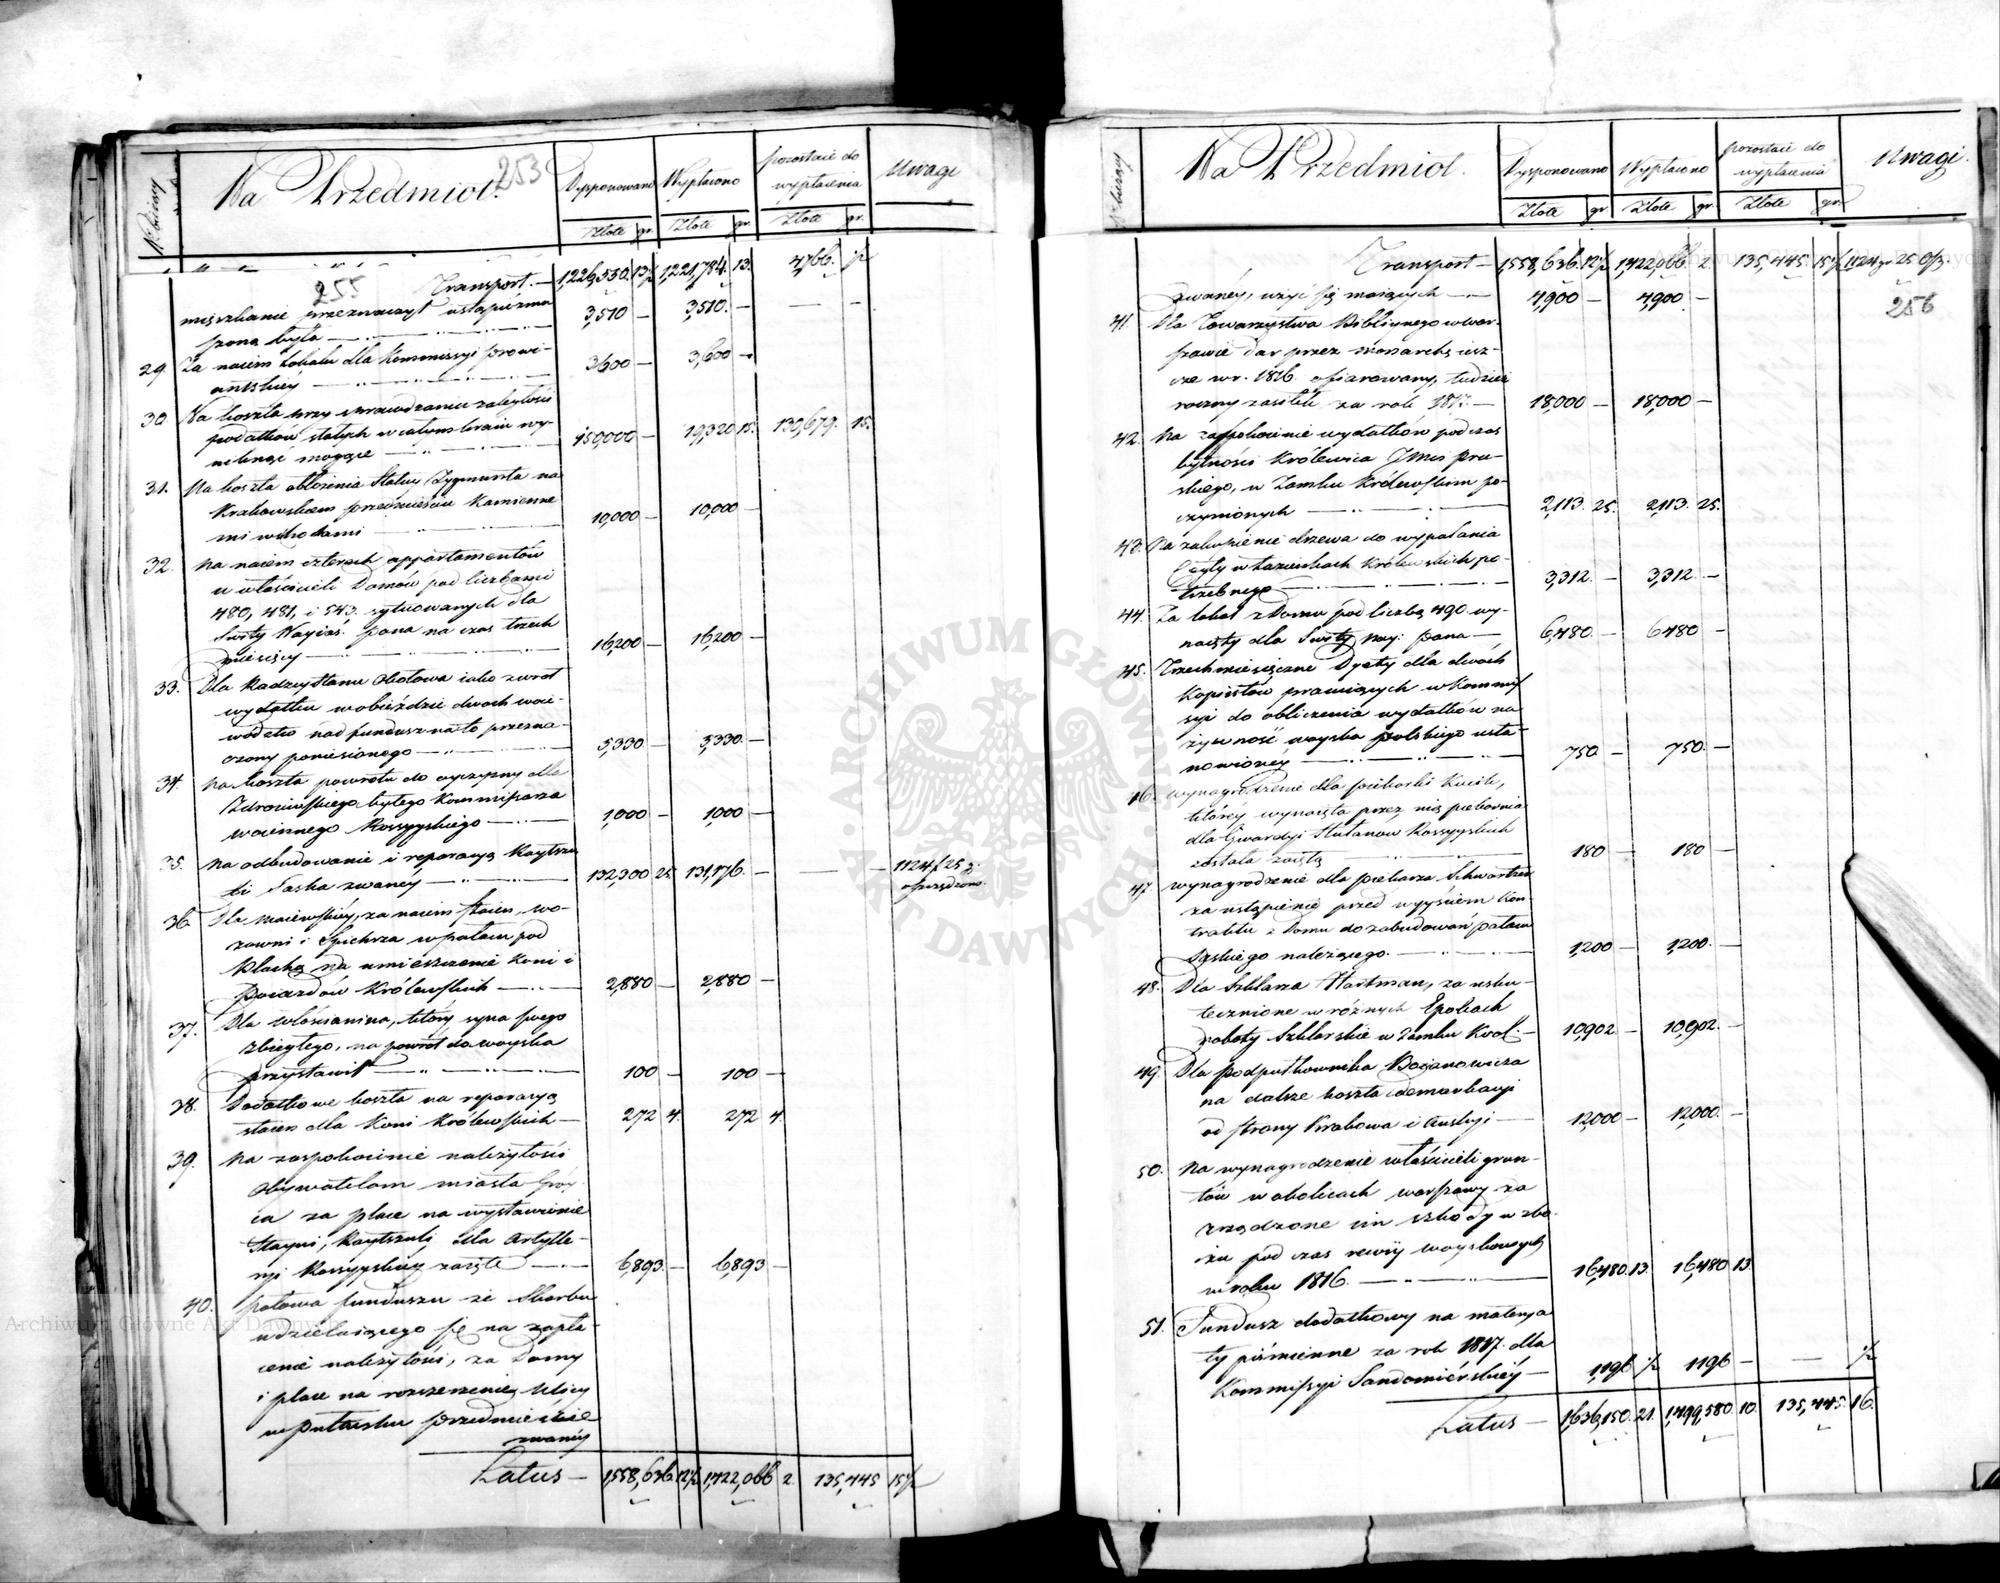 Nr bieżący
Na Przedmiot.
253
Dysponowano
Wypłacono
pozostaie do
wypłacenia
Uwagi
Złote gr. Złote gr. Złote gr.
255
Transport. — 1,226,550. 13½ 1,221,784. 13. 4,766. ½
mięszkanie przeznaczyt ustąpiona
być — 3,510 — 3,510. — — —
29. Za naiem Lokalu dla Kommissyi prowi-
antskiéy — 3,600 — 3,600 —
30. Na koszta przy sprawdzaniu zaległości
podatków stałych w całym kraiu wy-
niknąć mogące — 150,000 — 19,320 15. 130,679. 15.
31. Na koszta obłożenia Statuy Zygmunta na
Krakowskiem przedmieściu Kamienne
mi — 10,000 — 10,000 —
32. Na naiem czterech appartamentów
u właścicieli Domów pod liczbami
480, 481, i 543. sytuowanych dla
Świty Nayiaś. pana na czas trzech
miesięcy — 16,200 — 16,200 —
33. Dla Radzcy Stanu Okołowa iako zwrot
wydatku w obieździe dwoch woie-
wodztw nad fundusz na to przezna-
czony poniesionego — 5,330 — 5,330. —
34. Na koszta powrotu do oyczyzny dla
byłego Kommissarza
woiennego Rossyyskiego — 1,000 — 1,000 —
35. Na odbudowanie i reparacyą Kaytszu
li Saska zwanéy — 132,300 25. 131,176. — — — 1124 f 25 g.
oszczędzono.
36. Dla Maiewskiéy, za naiem staien, wo-
zowni i Spichrza w pałacu pod
Blachą na umieszczenie koni i
Poiazdów Królewskich — 2,880 — 2,880 —
37. Dla włościanina, który syna swego
zbiegłego, na powrót do woyska
przystawił — 100 — 100 —
38. Dodatkowe koszta na reparacyą
staien dla koni Królewskich — 272 4. 272 4.
39. Na zaspokoienie należytości
Obywatelom miasta Gróy-
ca za place na wystawienie
Stayni, Kaytszuli dla Artylle-
ryi Rossyyskiéy zaięte — 6,893. — 6,893 —
40. połowa funduszu ze Skarbu
udzielaiącego się na zapła-
cenie należytości, za Domy
i place na rozszerzenie Ulicy
w Pułtusku przedmieście
zwanéy
Latus — 1,558,636 12½ 1,422,066 2. 135,445 15½
Nr bieżący
Na Przedmiot.
Dysponowano
Wypłacono
pozostaie do
wypłacenia
Uwagi.
Złote gr. Złote gr. Złote gr.
Transport — 1,558,636. 12½ 1,422,066. 2. 135,445. 15½ 1124 gr 25
256
zwanéy, użyć się maiących — 4,900 — 4,900 —
41. Dla Towarzystwa Bibliynego w War-
szawie dar przez Monarchę iesz-
cze w r. 1816. ofiarowany, tudzież
roczny zasiłek za rok 1817. — 18,000 — 18,000 —
42. Na zaspokoienie wydatków podczas
bytności Królewica Jmci pru-
skiego, w Zamku Królewskim po-
czynionych — 2,113. 25. 2,113. 25.
43. Na zakupienie drzewa do wypalania
Cegły w Łazienkach Królewskich po-
trzebnego — 3,312. — 3,312. —
44. Za lokal z Domu pod liczbą 490 wy-
naięty dla Świty nay: pana — 6,480. — 6,480 —
45. Trzechmiesięczne Dyety dla dwóch
Kopistów pracuiących w Kommis
syi do obliczenia wydatków na
żywność woyska polskiego usta-
nowionéy — 750. — 750. —
46. wynagrodzenie dla piekarki Kucik,
któréy wynaięta przez nią piekarnia
dla Gwardyi Hułanow Rossyyskich
została zaiętą — 180 — 180 —
47. wynagrodzenie dla piekarza Schwartza
za ustąpienie przed wyyściem Kon-
traktu z Domu do zabudowań pałacu
Saskiego należącego. — 1,200 — 1,200. —
48. Dla Szklarza Hartman, za usku-
tecznione w różnych Epokach
roboty Szklarskie w Zamku Król: — 10,902. — 10,902. —
49. Dla podpułkownika Boianowicza
na dalsze koszta demarkacyi
od strony Krakowa i Austryi — 12,000 — 12,000. —
50. Na wynagrodzenie właścicieli grun-
tów w okolicach Warszawy za
zrządzone im szkody w zbo-
żu podczas rewiy woyskowych
w roku 1816. — 16,480. 13. 16,480 13
51. Fundusz dodatkowy na materya-
ły piśmienne za rok 1817. dla
Kommissyi Sandomiérskiéy — 1,196 ½ 1196 — — ½
Latus — 1,636,150. 21. 1,499,580. 10. 135,445. 16.
ARCHIWUM GŁÓWNE AKT DAWNYCH
Archiwum Główne Akt Dawnych